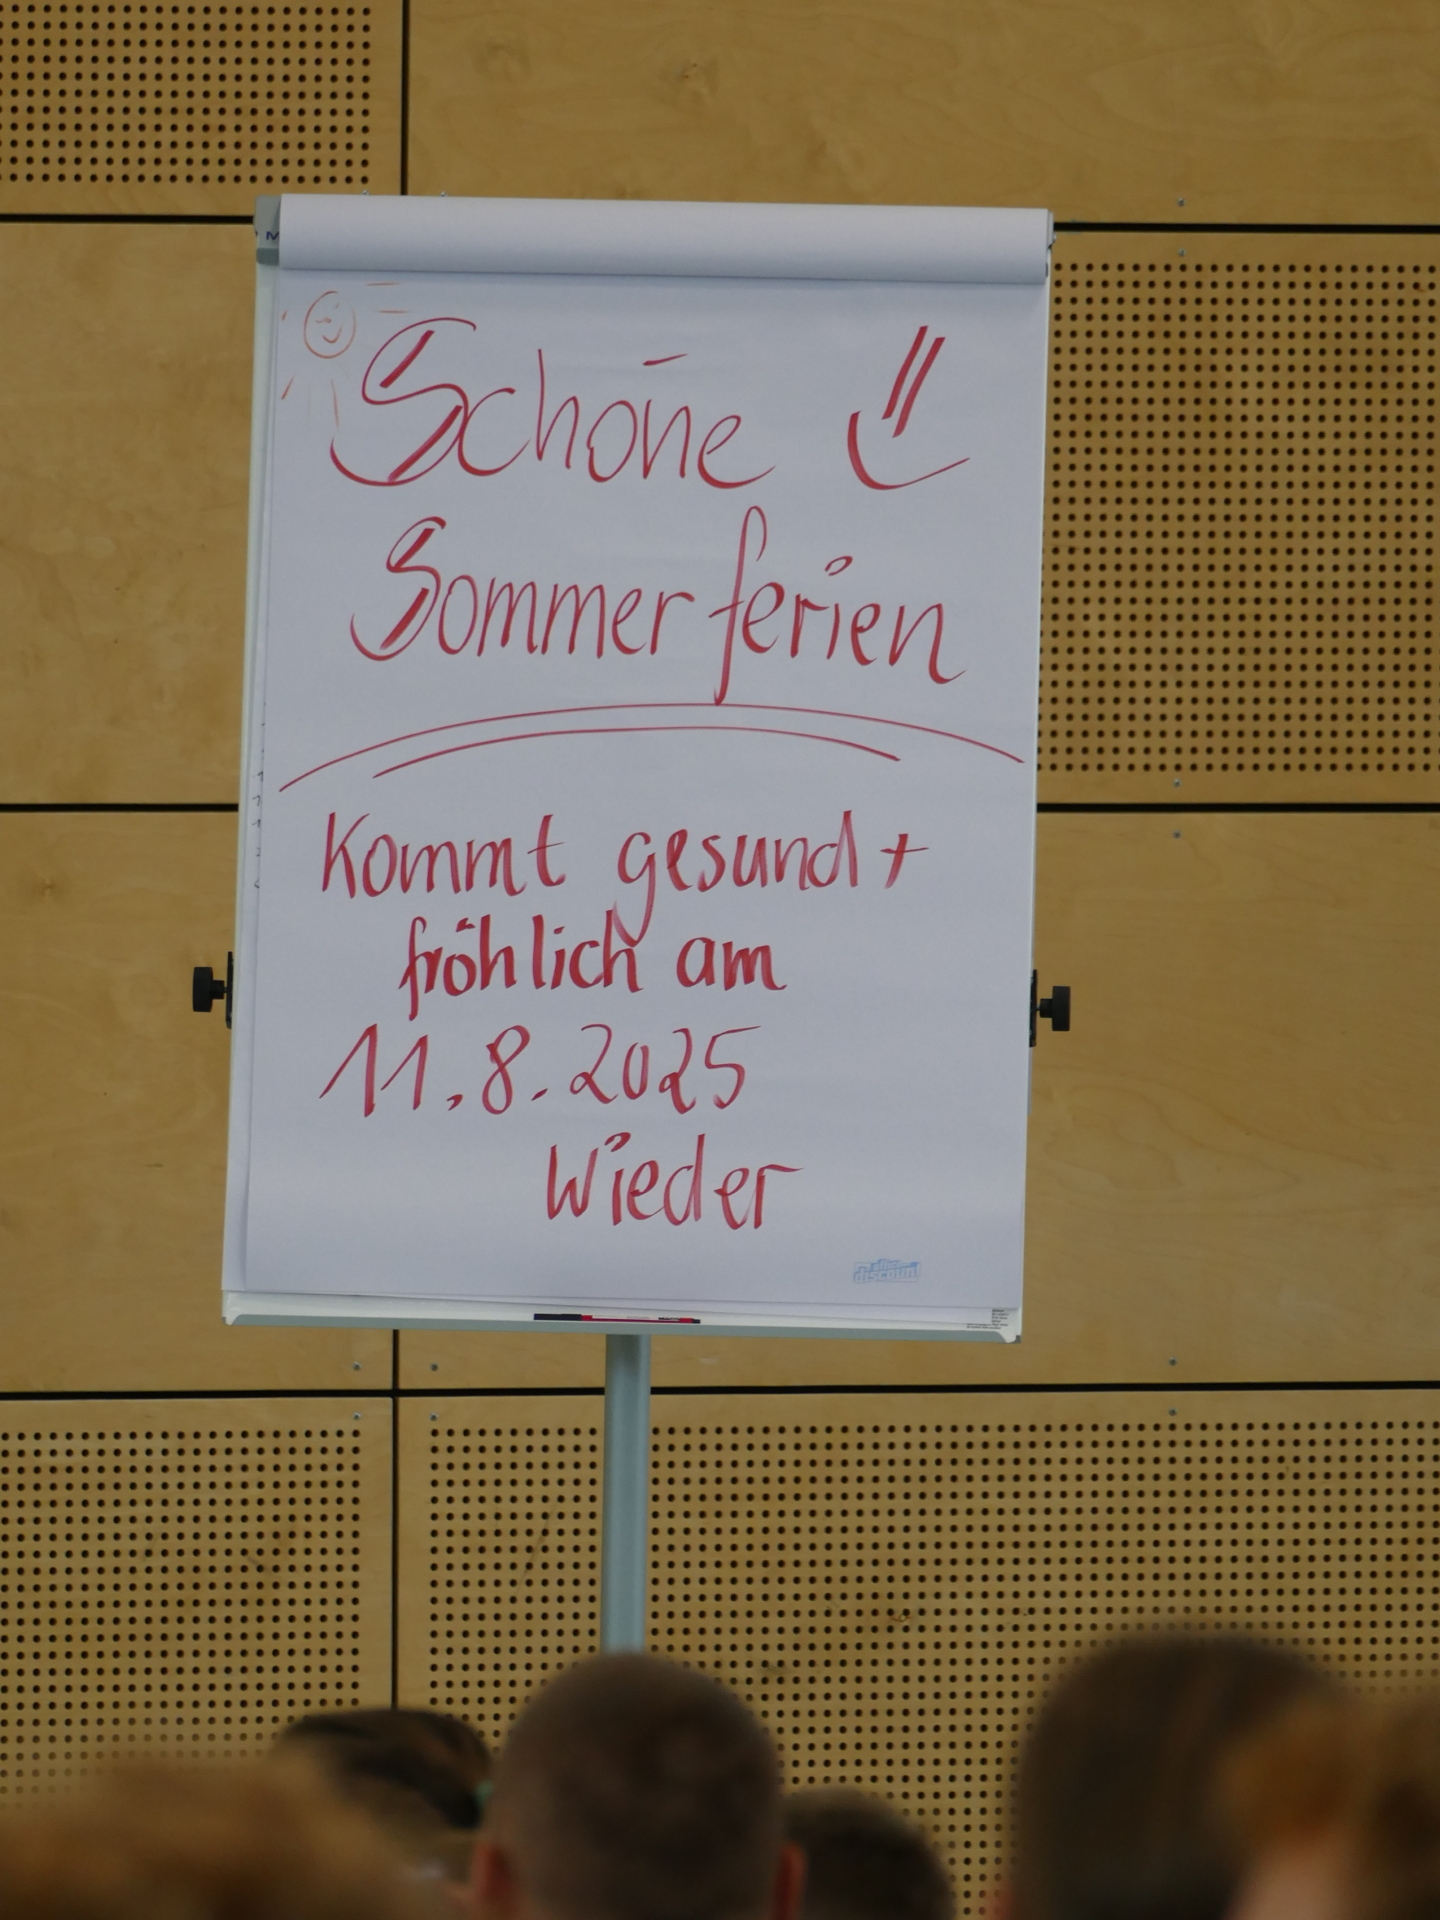 Schöne
Sommerferien
Kommt gesund +
fröhlich am
11.8.2025
Wieder
office
discount